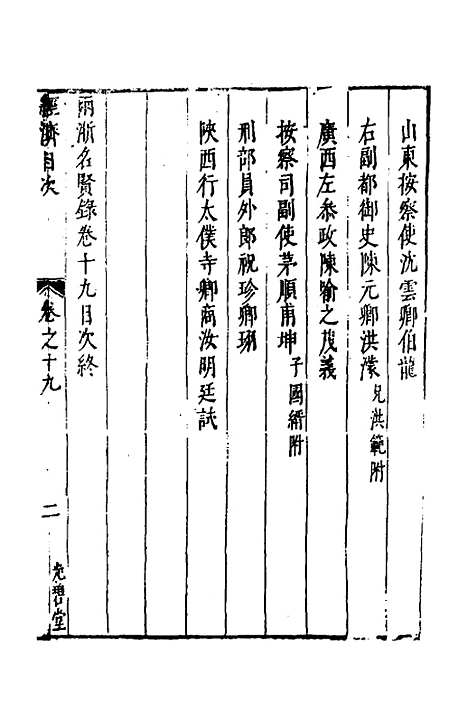 山東按察使沈雲卿伯龍
右副都御史陳元卿洪濛兄洪範附
廣西左叅政陳喻之茂義
按察司副使茅順甫坤子國縉附
刑部員外郎祝珍卿珝
陝西行太僕寺卿商汝明廷試
兩浙名賢錄卷十九目次終
經濟目次
卷之十九
二
光碧堂